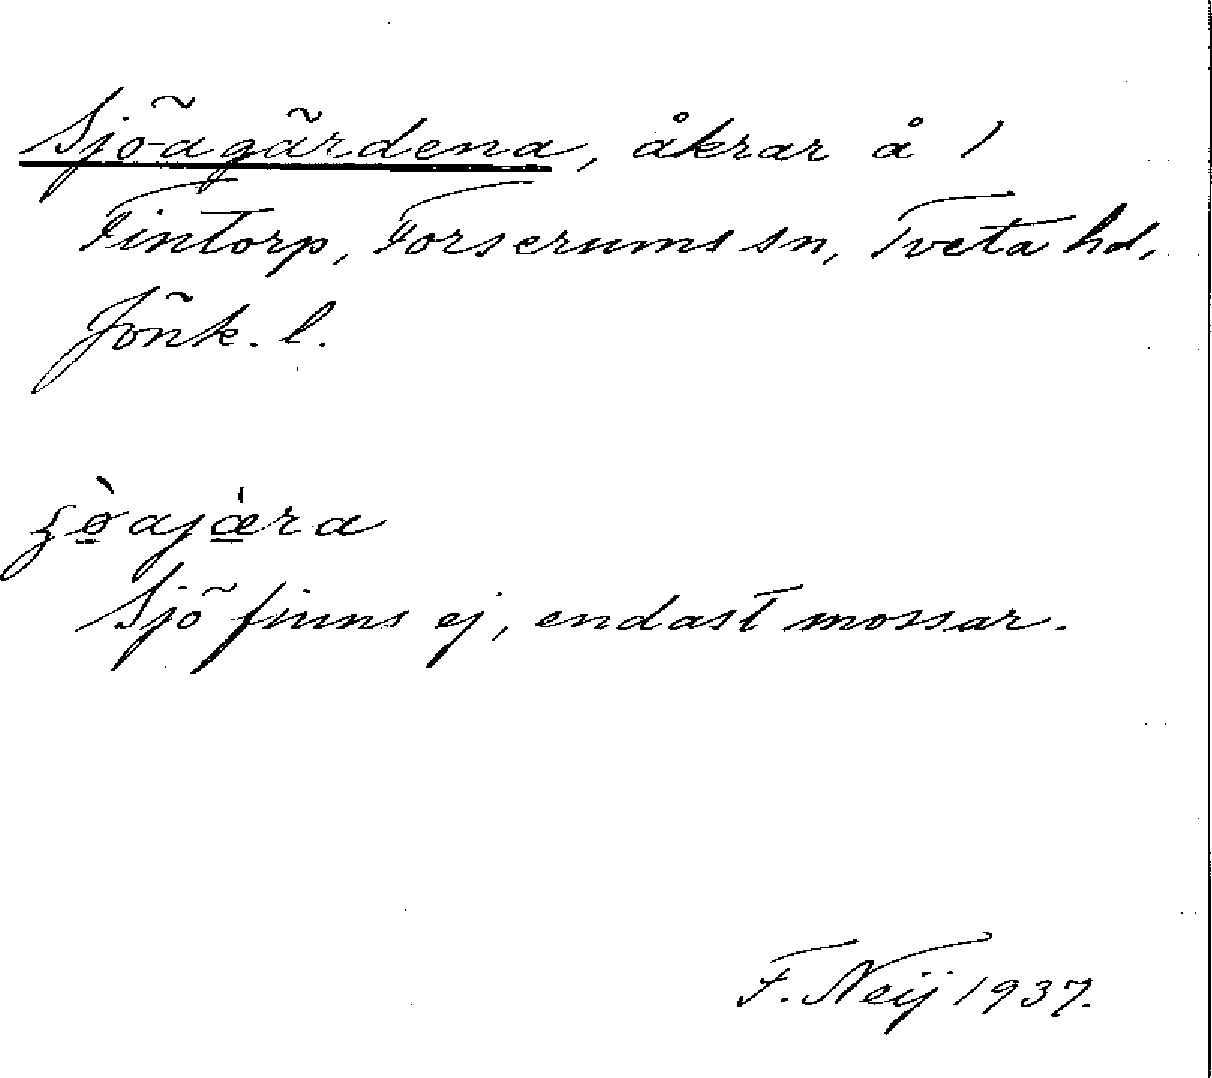 Sjöagärdena, åkrar å 1
Fintorp, Forserums sn, Tveta hd,
Jönk. l.
ʂø̠̀ajæ̠̀ra
Sjö finns ej, endast mossar.
F. Neij 1937.